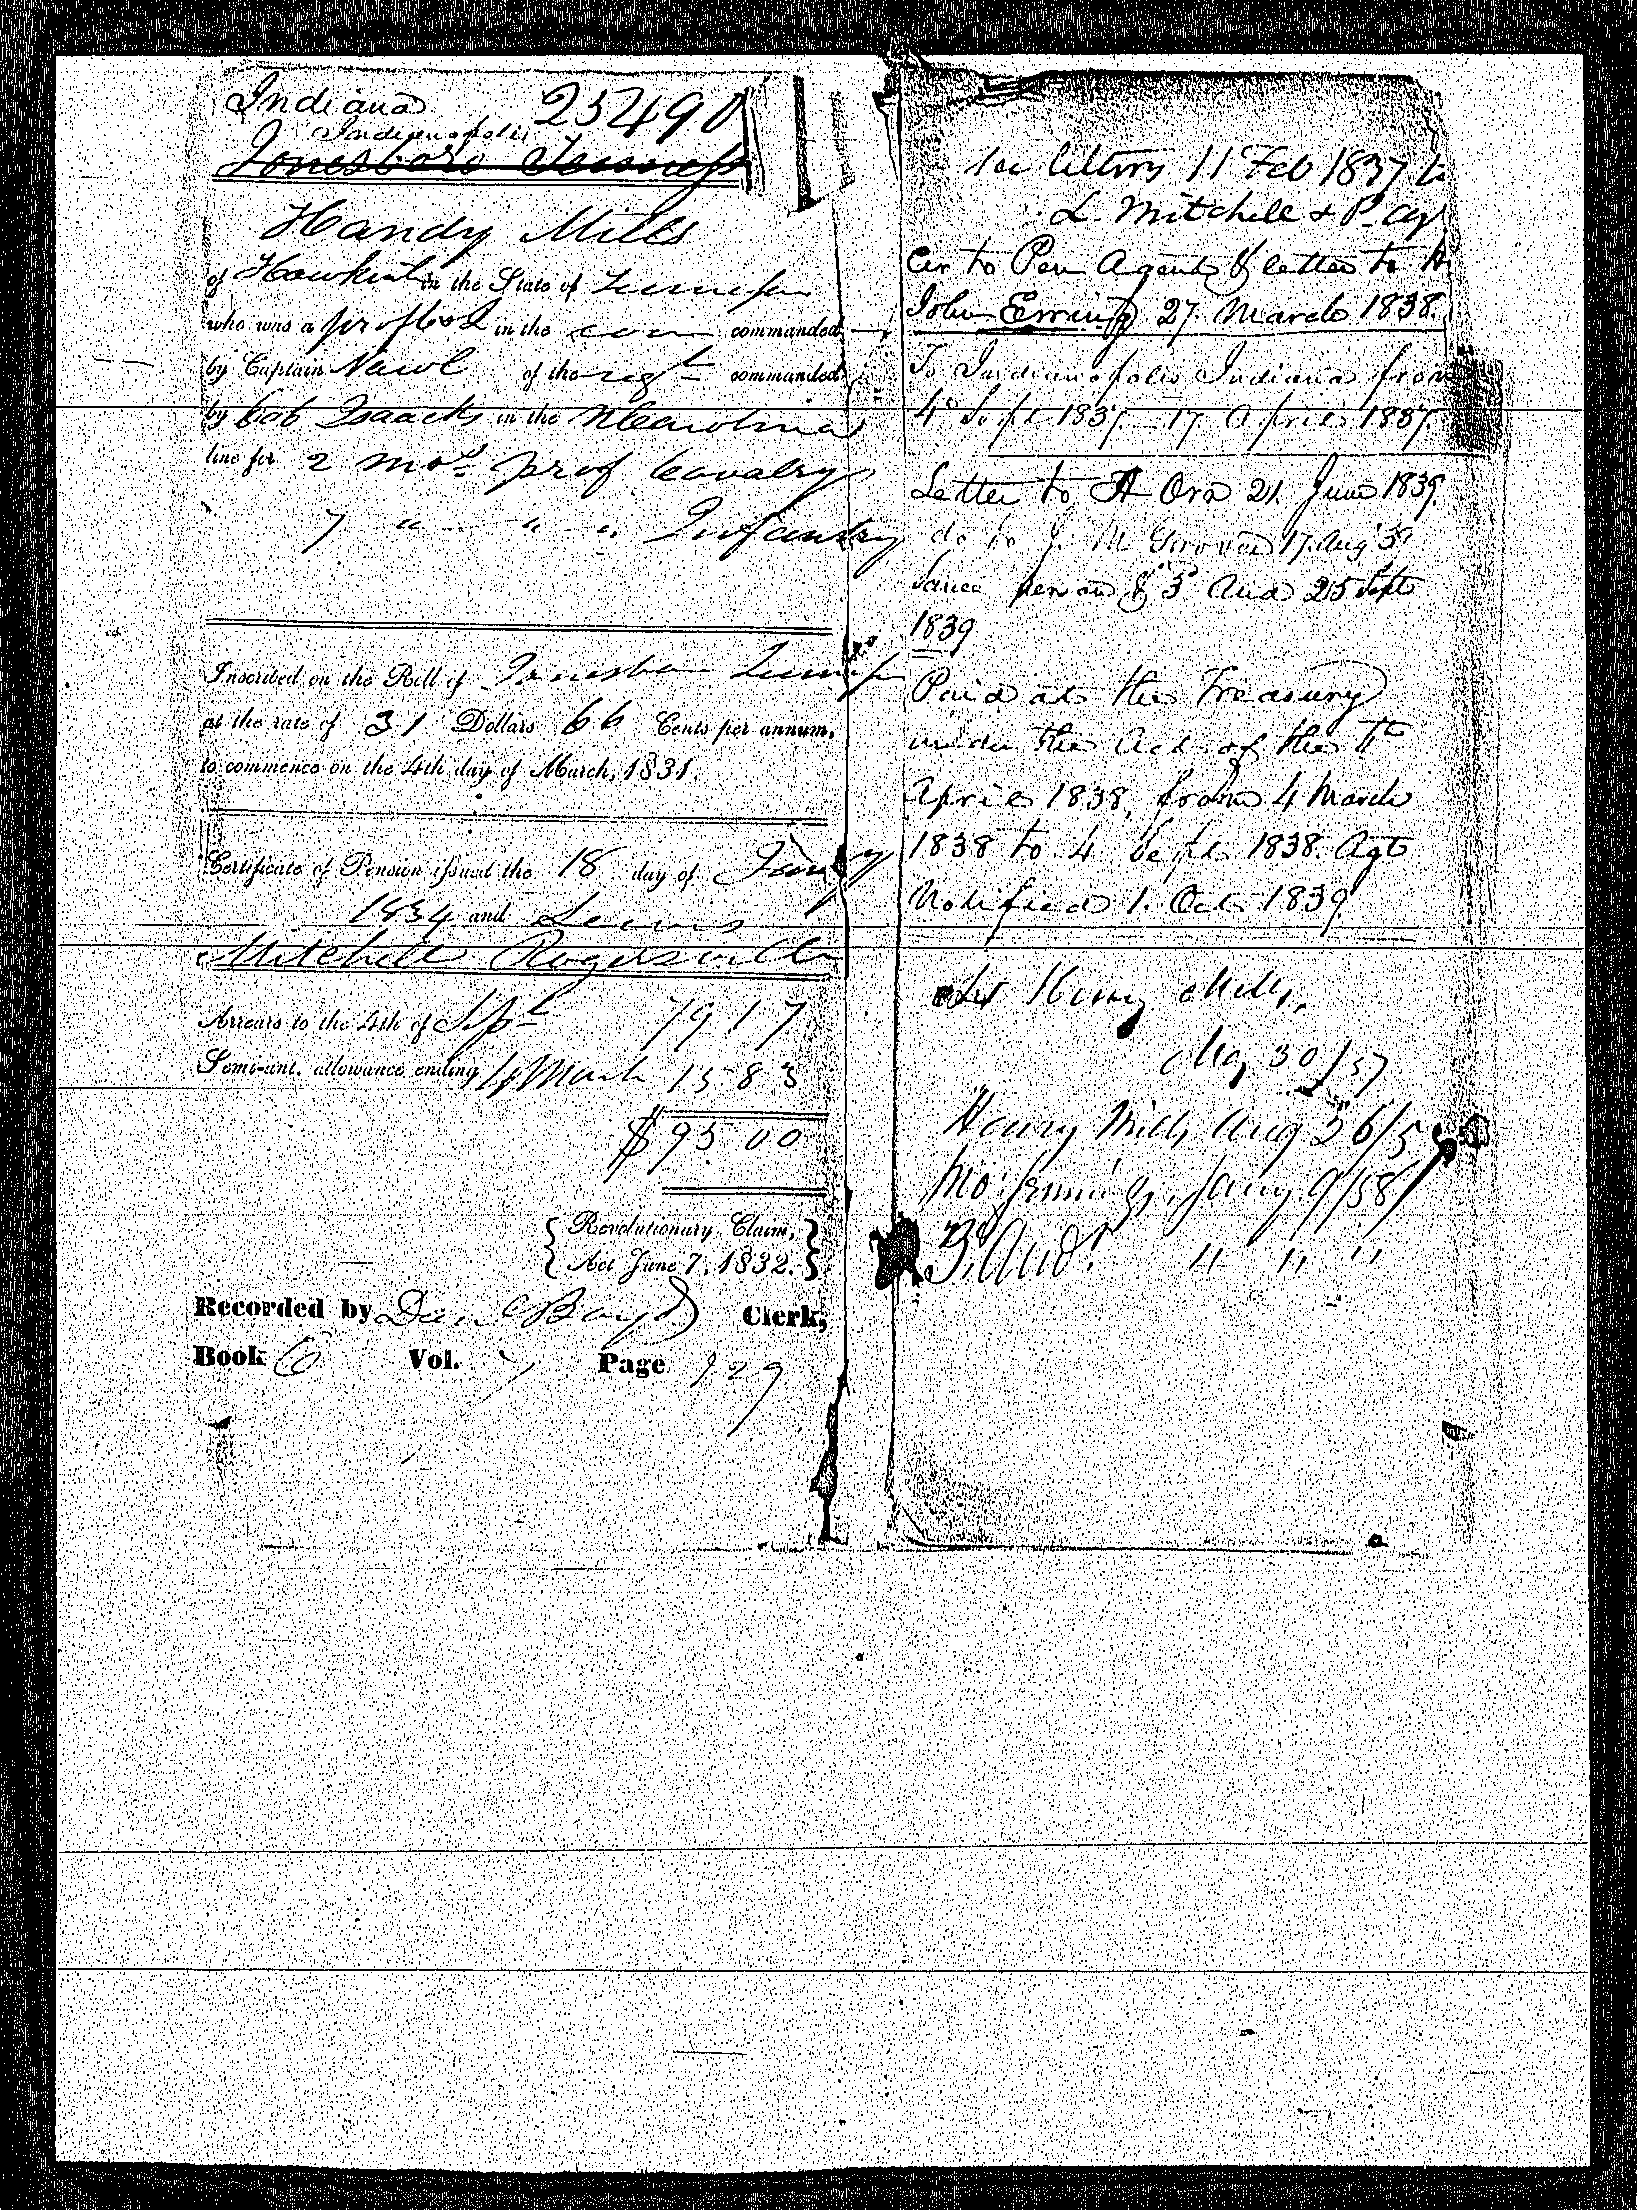 Indiana 23490
Indianapolis
Jonesboro Tennessee
Handy Mills
of Hawkins in the State of Tennessee
who was a pr & Sol in the com commanded
by Captain Nawl of the regt commanded
by Col Isaacks in the N Carolina
line for 2 mos prof Cavalry
7 " " " Infantry
Inscribed on the Roll of Jonesboro Tennessee
at the rate of 31 Dollars 66 Cents per annum,
to commence on the 4th day of March, 1831.
Certificate of Pension issued the 18 day of Jany
1834 and Lewis
Mitchell Rogersville
Arrears to the 4th of Sept 79 17
Semi-anl. allowance ending 4 March 15 83
$95.00
{ Revolutionary Claim, }
{ Act June 7, 1832. }
Recorded by Dan Boyd Clerk,
Book E Vol. 7 Page 129
See letters 11 Feb 1837 to
L. Mitchell & P. Ag
Cer to Pen Agent & letter to
John 27 March 1838.
To Indianapolis Indiana from
4 Sept 1837. 17 April 1837.
Letter to 21 June 1839.
do to J. M 17. Aug 39
Same person & 3 Aud 25 Sept
1839
Paid at the Treasury
under the Act of the
April 1838, from 4 March
1838 to 4 Sept 1838. Agt
Notified 1. Oct 1839
Let Henry Mills,
May 30/57
Henry Mills Aug 26/5
Mo Jany 9/58
3. Aud. " " "